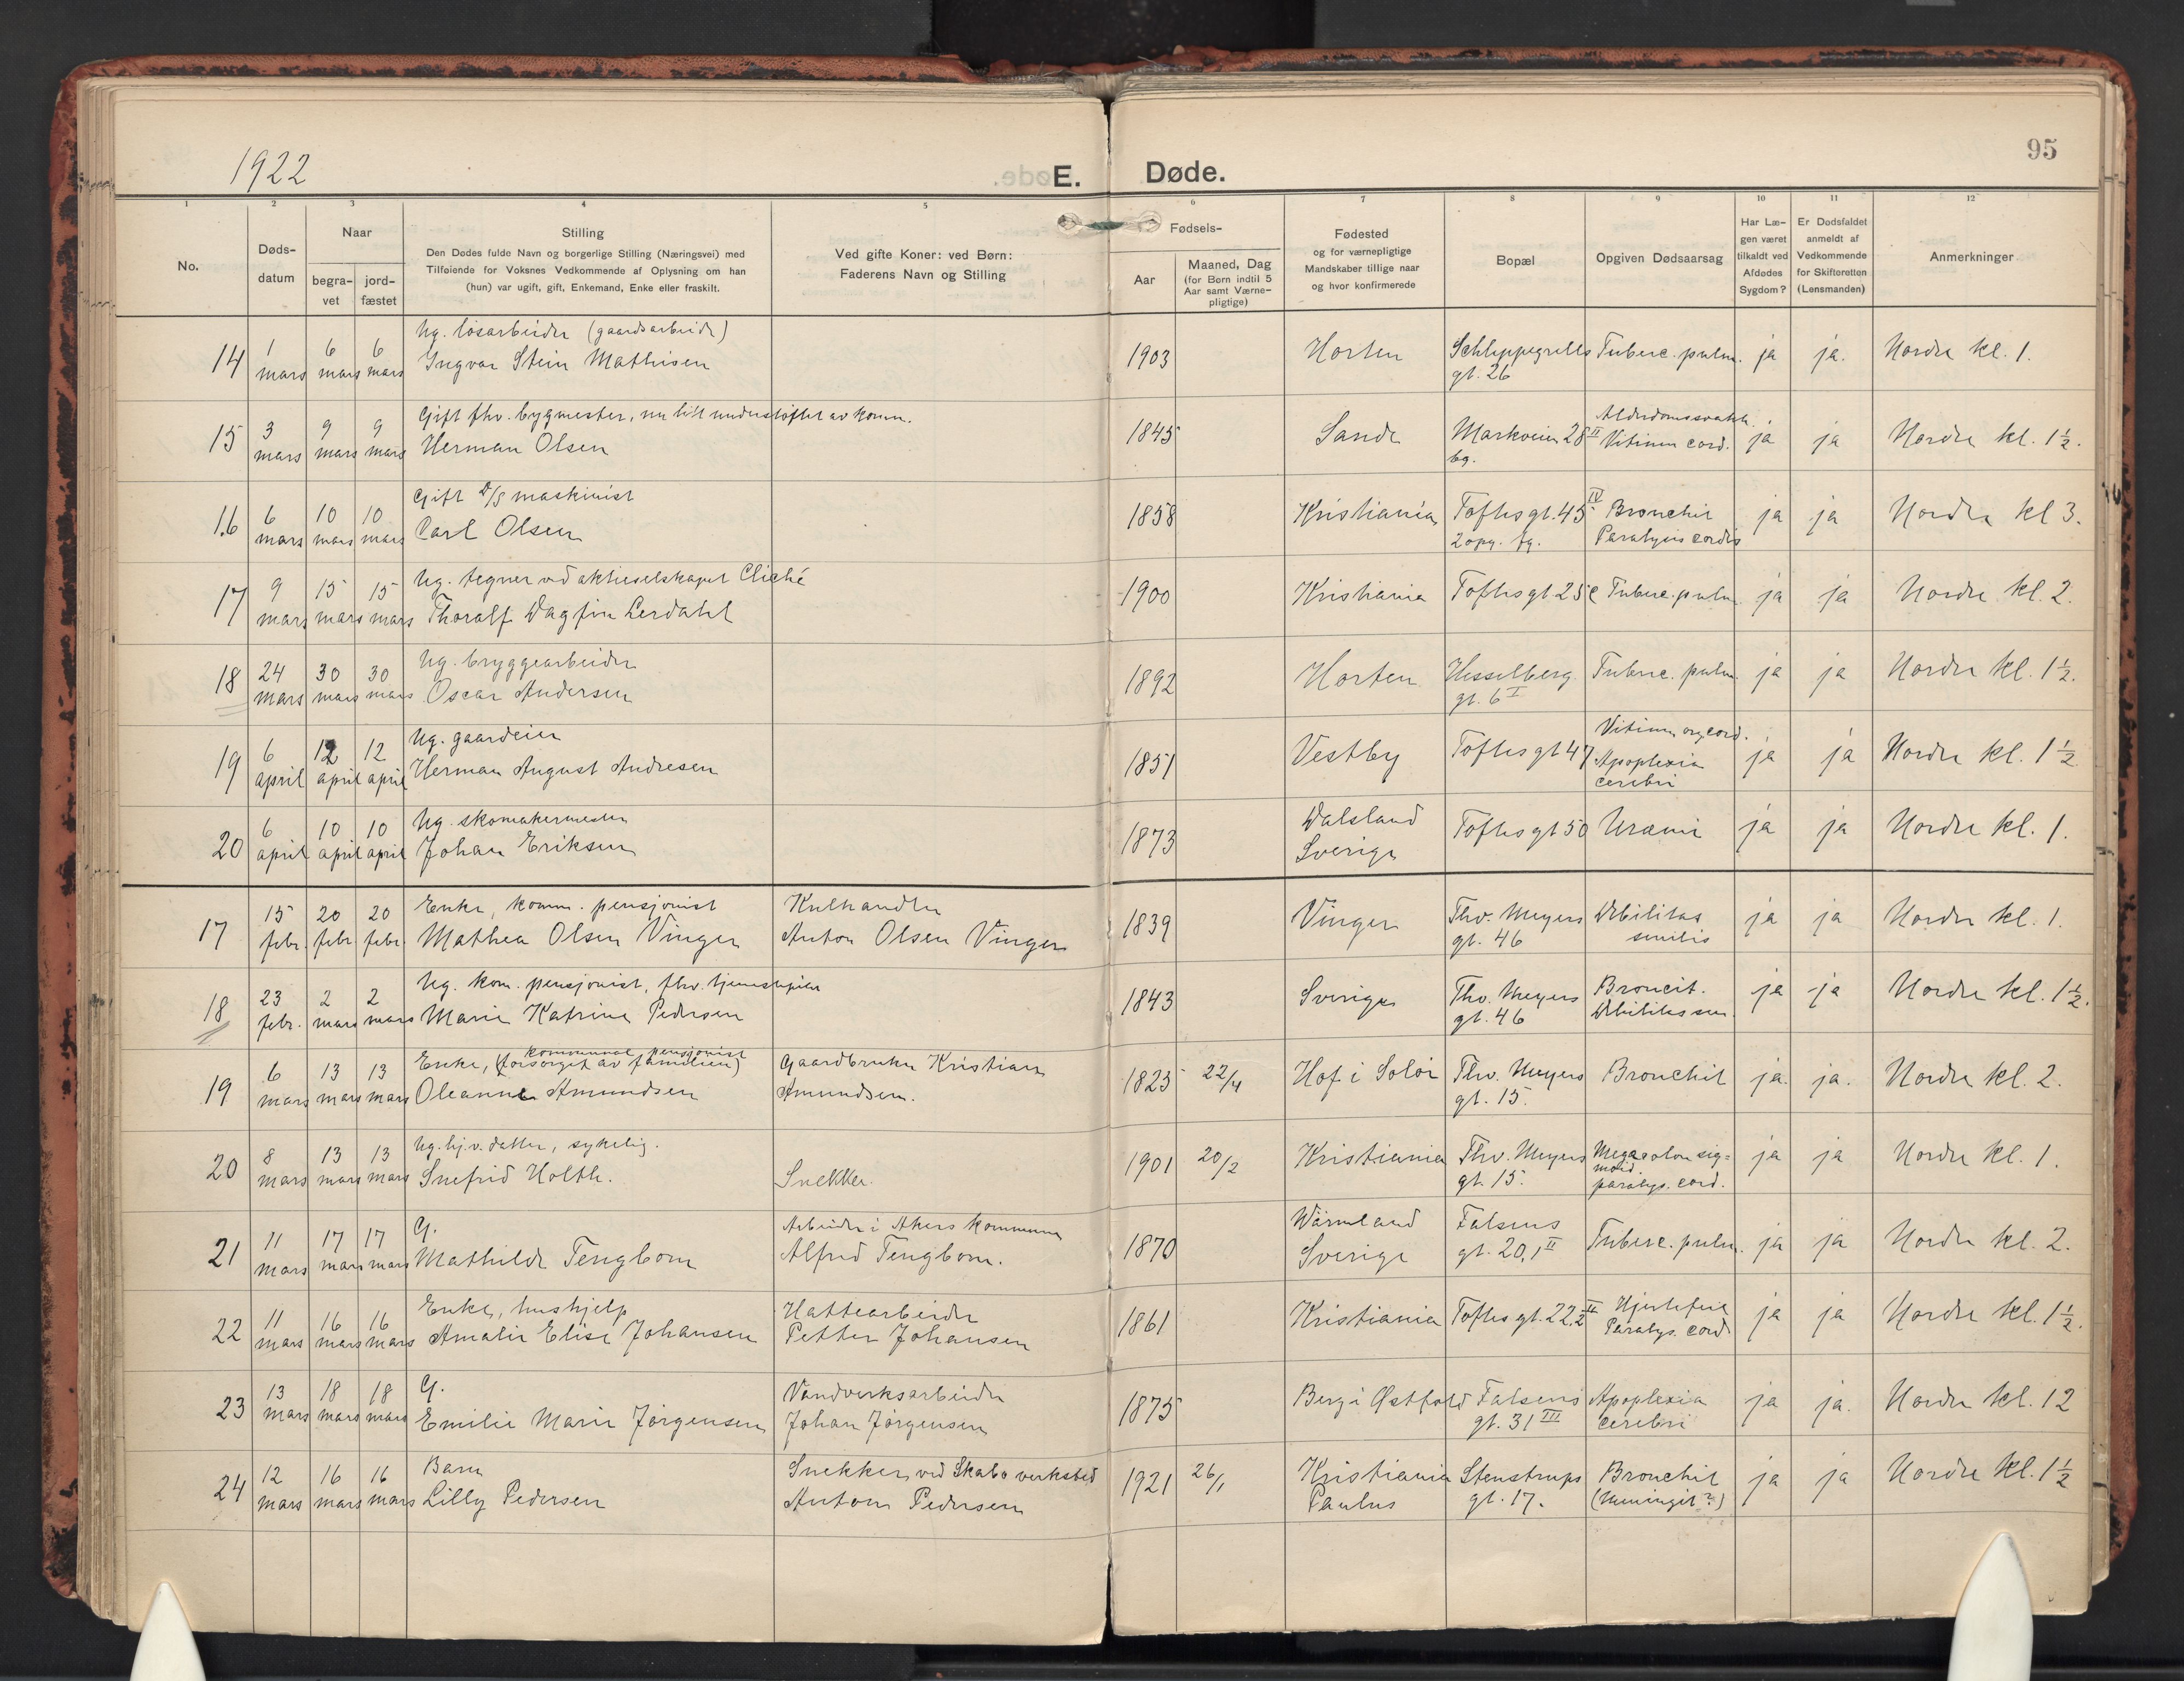 1922
E. Døde.
95
1 2 3 4 5 6 7 8 9 10 11 12
No.
Døds-
datum
Naar
begra-
vet
jord-
fæstet
Stilling
Den Dødes fulde Navn og borgerlige Stilling (Næringsvei) med
Tilføiende for Voksnes Vedkommende af Oplysning om han
(hun) var ugift, gift, Enkemand, Enke eller fraskilt.
Ved gifte Koner: ved Børn:
Faderens Navn og Stilling
Fødsels-
Aar
Maaned, Dag
(for Børn indtil 5
Aar samt Værne-
pligtige)
Fødested
og for værnepligtige
Mandskaber tillige naar
og hvor konfirmerede
Bopæl
Opgiven Dødsaarsag
Har Læ-
gen været
tilkaldt ved
Afdødes
Sygdom?
Er Dødsfaldet
anmeldt af
Vedkommende
for Skifteretten
(Lensmanden)
Anmerkninger
Ug. løsarbeider (gaardsarbeidr)
14 1 mars 6 mars 6 mars Ingvar Stein Mathisen 1903 Horten Schleppegrells Tuberc. pulm. ja ja. Nordre kl. 1.
gt. 26
Gift fhv. bygmester, nu litt understøttet av komm.
Alderdomssvakh.
15 3 mars 9 mars 9 mars Herman Olsen 1845 Sande Markveien 28 II Vitium cord. ja ja Nordre kl. 1½.
bg.
Gift D/S maskinist
16 6 mars 10 mars 10 mars Carl Olsen 1858 Kristiania Toftesgt. 45 IV Bronchit ja ja Nordre kl 3.
2 opg. fg. Paralysis cordis
Ug. tegner ved aktieselskapet Cliché
17 9 mars 15 mars 15 mars Thoralf Dagfin Lerdahl 1900 Kristiania Toftesgt. 25c Tuberc. pulm. ja ja Nordre kl. 2.
Ug. bryggearbeider
18 24 mars 30 mars 30 mars Oscar Andersen 1892 Horten Hesselberg Tuberc. pulm. ja ja Nordre kl. 1½.
gt. 6 I
Ug. gaardeier
Vitium org. cord.
19 6 april 12 april 12 april Herman August Andresen 1851 Vestby Toftesgt 47 Apoplexia ja ja Nordre kl. 1½
cerebri
Ug. skomakermester
20 6 april 10 april 10 april Johan Eriksen 1873 Dalsland Toftesgt 50 Uræmi ja ja Nordre kl. 1.
Sverige
Enke, komm. pensjonist Kulhandler
17 15 febr. 20 febr 20 febr. Mathea Olsen Vinger Anton Olsen Vinger 1839 Vinger Thv. Meyers Debilitas ja ja Nordre kl. 1.
gt. 46 senilis
Ug. kom. pensjonist, fhv. tjenestepike
18 23 febr. 2 mars 2 mars Marie Katrine Pedersen 1843 Sverige Thv. Meyers Broncit. ja ja Nordre kl. 1½.
gt. 46 Debilitas sen.
kommunal pensjonist
Enke, (forsørget av familien) Gaardbruker Kristian
19 6 mars 13 mars 13 mars Oleanne Amundsen Amundsen. 1825 22/4 Hof i Solør Thv. Meyers Bronchit ja. ja. Nordre kl. 2.
gt. 15.
Ug. hj.v. datter, sykelig.
20 8 mars 13 mars 13 mars Snefrid Holth. Snekker. 1901 20/2 Kristiania Thv. Meyers Megacolon sig= ja ja Nordre kl. 1.
gt. 15. moid. paralys. cord.
G. Arbeider i Akers kommune
21 11 mars 17 mars 17 mars Mathilde Tengbom Alfred Tengbom. 1870 Wärmland Falsens Tuberc. pulm. ja ja Nordre kl. 2.
Sverige gt. 20, 1 II
Enke, hushjelp Hattearbeider
22 11 mars 16 mars 16 mars Amalie Elise Johansen Petter Johansen 1861 Kristiania Toftes gt. 22,2 II Hjertefeil ja ja Nordre kl. 1½.
Paralys. cord
G. Vandverksarbeider
23 13 mars 18 mars 18 mars Emilie Marie Jørgensen Johan Jørgensen 1875 Berg i Østfold Falsens Apoplexia ja ja. Nordre kl. 12
gt. 31 III cerebri
Barn Snekker ved Skabo verksted
24 12 mars 16 mars 16 mars Lilly Pedersen Anton Pedersen 1921 26/1 Kristiania Stenstrups Bronchit ja ja Nordre kl. 1½
Paulus gt. 17. (Meningit?)